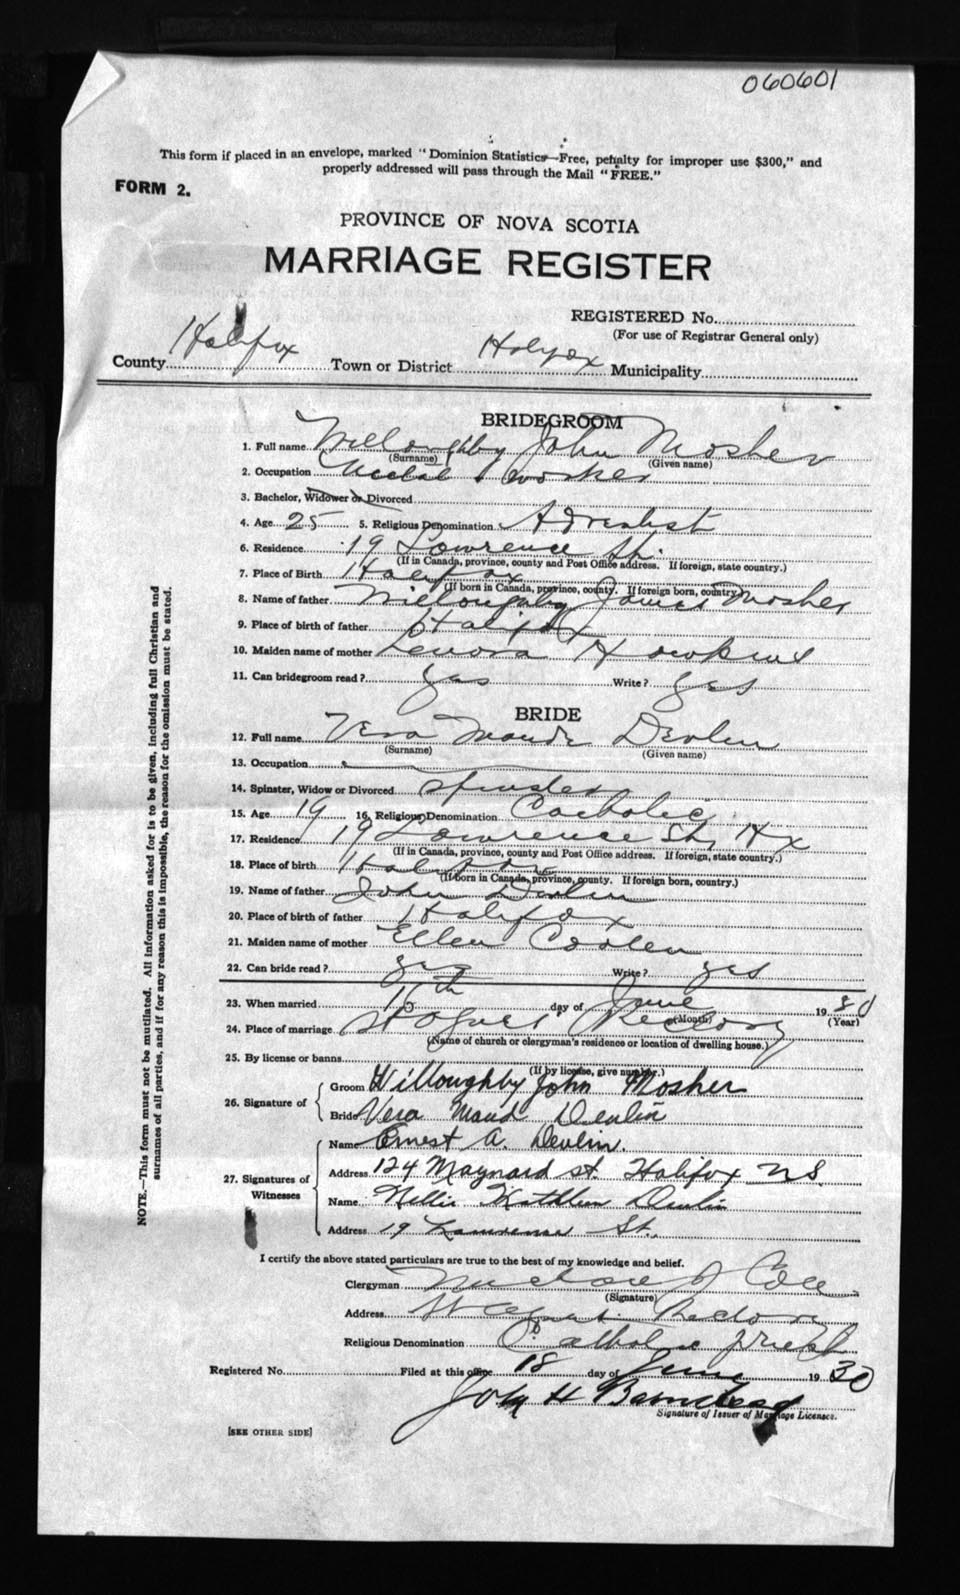 060601
This form if placed in an envelope, marked "Dominion Statistics—Free, penalty for improper use $300," and
properly addressed will pass through the Mail "FREE."
FORM 2.
PROVINCE OF NOVA SCOTIA
MARRIAGE REGISTER
REGISTERED No.
(For use of Registrar General only)
County Halifax Town or District Halifax Municipality
BRIDEGROOM
1. Full name Willoughby John Mosher
(Surname) (Given name)
2. Occupation Metal worker
3. Bachelor, Widower or Divorced
4. Age 25 5. Religious Denomination Adventist
6. Residence 19 Lawrence St.
(If in Canada, province, county and Post Office address. If foreign, state country.)
7. Place of Birth Halifax
(If born in Canada, province, county. If foreign born, country.)
8. Name of father Willoughby James Mosher
9. Place of birth of father Halifax
10. Maiden name of mother Lenora Hawkins
11. Can bridegroom read? yes Write? yes
BRIDE
12. Full name Vera Maude Devlin
(Surname) (Given name)
13. Occupation
14. Spinster, Widow or Divorced Spinster
15. Age 19 16. Religious Denomination Catholic
17. Residence 19 Lawrence St, Hx
(If in Canada, province, county and Post Office address. If foreign, state country.)
18. Place of birth Halifax
(If born in Canada, province, county. If foreign born, country.)
19. Name of father John Devlin
20. Place of birth of father Halifax
21. Maiden name of mother Ellen Coolen
22. Can bride read? yes Write? yes
23. When married 16th day of June 1930
(Month) (Year)
24. Place of marriage St Agnes Rectory
(Name of church or clergyman's residence or location of dwelling house.)
25. By license or banns
(If by license, give number.)
26. Signature of Groom Willoughby John Mosher
Bride Vera Maud Devlin
27. Signatures of Witnesses Name Ernest A. Devlin.
Address 124 Maynard St. Halifax NS.
Name Nellie Kathleen Devlin
Address 19 Lawrence St.
I certify the above stated particulars are true to the best of my knowledge and belief.
Clergyman
(Signature)
Address St Agnes Rectory
Religious Denomination Catholic Priest
Registered No. Filed at this office 18 day of June 1930
John H Barnstead
Signature of Issuer of Marriage Licenses.
[SEE OTHER SIDE]
NOTE.—This form must not be mutilated. All information asked for is to be given, including full Christian and
surnames of all parties, and if for any reason this is impossible, the reason for the omission must be stated.